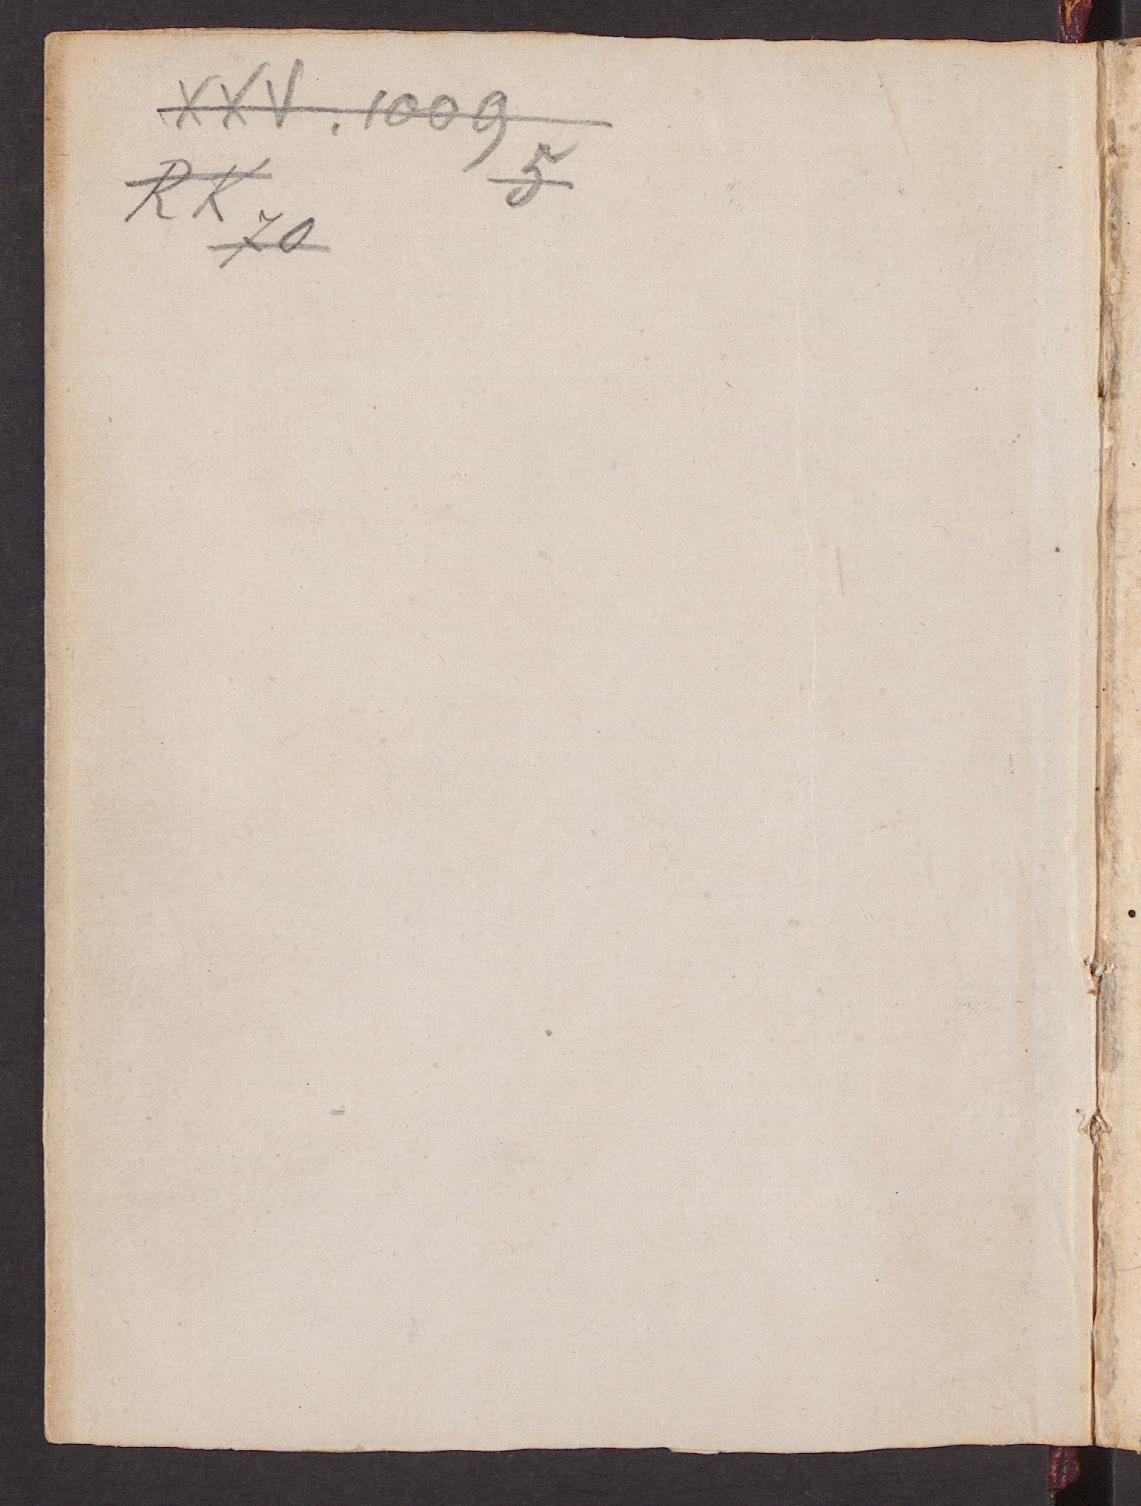 XXV. 1009
5
RK
70